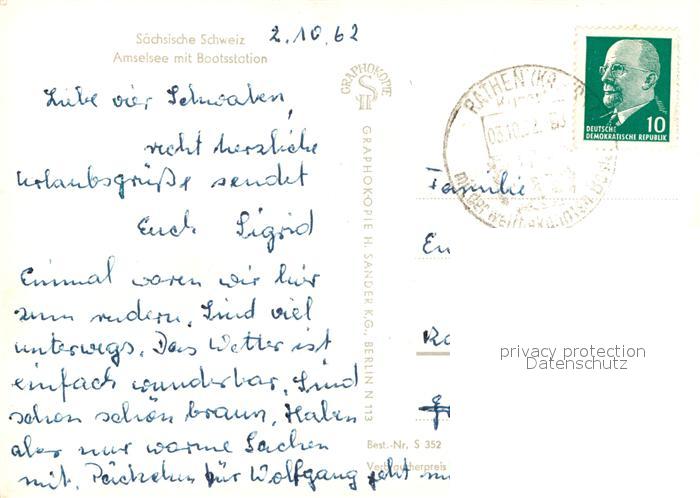 Sächsische Schweiz
Amselsee mit Bootsstation
2.10.62
Liebe vier Schwaben,
recht herzliche
Urlaubsgrüße sendet
Euch Sigrid
Einmal waren wir hier
zum rudern. Sind viel
unterwegs. Das Wetter ist
einfach wunderbar. Sind
schon schön braun. Haben
aber nur warme Sachen
mit. Päckchen für Wolfgang geht
GRAPHOKOPIE
GRAPHOKOPIE H. SANDER K.G., BERLIN N 113
Best.-Nr. S 352
Verbraucherpreis
RATHEN
Kurort
03.10.62
mit der weltbekannten
DEUTSCHE
DEMOKRATISCHE REPUBLIK
10
Familie
privacy protection
Datenschutz